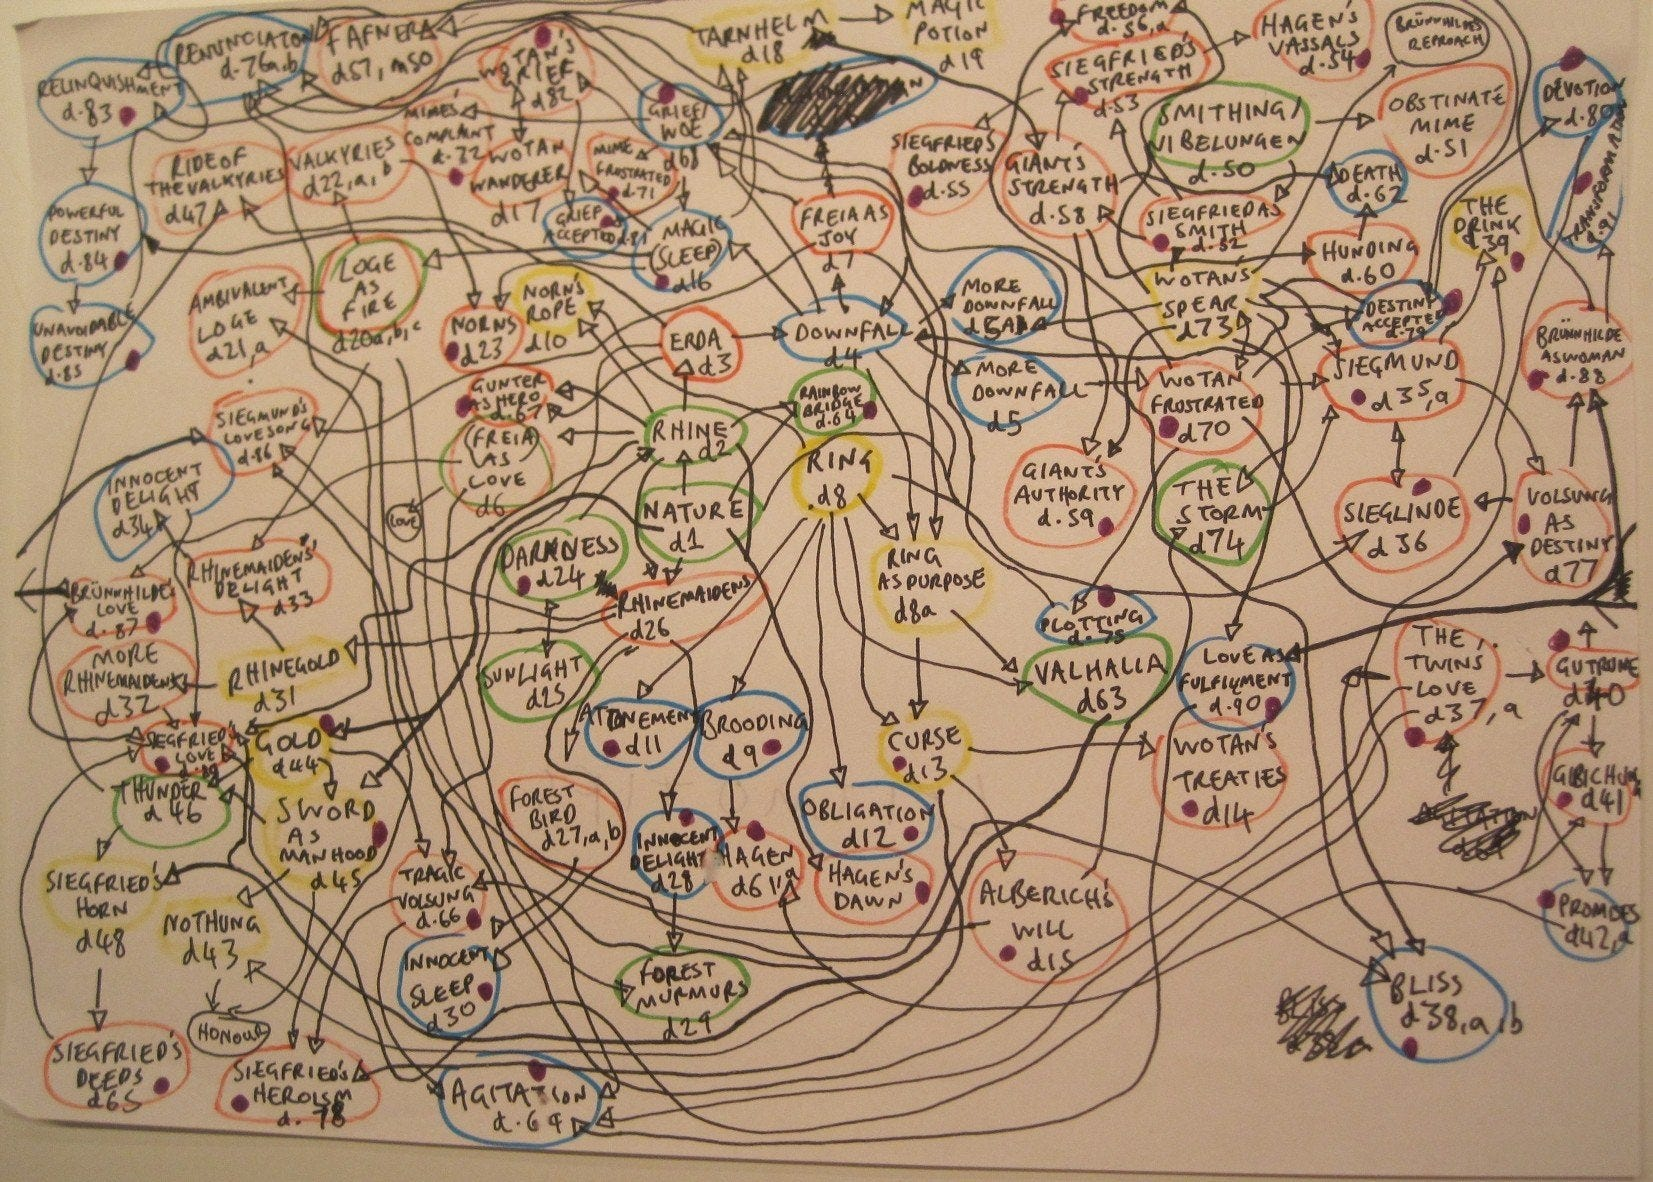 RENUNCIATION
d.76a,b
FAFNER
d57, a50
WOTAN'S
GRIEF
d82
TARNHELM
d18
MAGIC
POTION
d19
FREEDOM
d.56,a
SIEGFRIED'S
STRENGTH
d.53
HAGEN'S
VASSALS
d.54
BRÜNNHILDE'S
REPROACH
RELINQUISHMENT
d.83
GRIEF/
WOE
d68
DEVOTION
d.80
MIME'S
COMPLAINT
d.72
SMITHING/
NIBELUNGEN
d.50
OBSTINATE
MIME
d.51
RIDE OF
THE VALKYRIES
d47
VALKYRIES
d22,a,b
WOTAN
WANDERER
d17
MIME
FRUSTRATED
d.71
SIEGFRIED'S
BOLDNESS
d.55
GIANT'S
STRENGTH
d.58
DEATH
d.62
TRANSFORMATION
d.91
POWERFUL
DESTINY
d.84
GRIEF
ACCEPTED d.81
MAGIC
(SLEEP)
d16
FREIA AS
JOY
d7
SIEGFRIED AS
SMITH
d.52
HUNDING
d.60
THE
DRINK
d39
LOGE
AS
FIRE
d20a,b,c
AMBIVALENT
LOGE
d21,a
NORN'S
ROPE
d10
NORNS
d23
ERDA
d3
DOWNFALL
d4
MORE
DOWNFALL
d5A
WOTAN'S
SPEAR
d73
DESTINY
ACCEPTED
d.79
UNAVOIDABLE
DESTINY
d.85
BRÜNNHILDE
AS WOMAN
d.88
MORE
DOWNFALL
d5
WOTAN
FROSTRATED
d70
SIEGMUND
d35,a
GUNTER
AS HERO
d.67
RAINBOW
BRIDGE
d.64
SIEGMUND'S
LOVE SONG
d.86
(FREIA)
AS
LOVE
d6
RHINE
d2
RING
d8
GIANT'S
AUTHORITY
d.59
THE
STORM
d74
SIEGLINDE
d36
VOLSUNG
AS
DESTINY
d77
INNOCENT
DELIGHT
d34
LOVE
NATURE
d1
DARKNESS
d24
RHINEMAIDENS'
DELIGHT
d33
RHINEMAIDENS
d26
RING
AS PURPOSE
d8a
PLOTTING
d.75
BRÜNNHILDE'S
LOVE
d.87
SUNLIGHT
d25
VALHALLA
d63
LOVE AS
FULFILMENT
d.90
THE
TWINS
LOVE
d37,a
GUTRUNE
d40
MORE
RHINEMAIDENS
d32
RHINEGOLD
d31
ATONEMENT
d11
BROODING
d9
CURSE
d13
WOTAN'S
TREATIES
d14
SIEGFRIED'S
LOVE
GOLD
d44
GIBICHUNG
d41
THUNDER
d46
SWORD
AS
MANHOOD
d45
FOREST
BIRD
d27,a,b
OBLIGATION
d12
INNOCENT
DELIGHT
d28
HAGEN
d61,a
HAGEN'S
DAWN
AGITATION
SIEGFRIED'S
HORN
d48
NOTHUNG
d43
TRAGIC
VOLSUNG
d.66
ALBERICH'S
WILL
d15
PROMISES
d42,a
INNOCENT
SLEEP
d30
FOREST
MURMURS
d29
BLISS
d38,a,b
HONOUR
SIEGFRIED'S
DEEDS
d65
SIEGFRIED'S
HEROISM
d.78
AGITATION
d.69